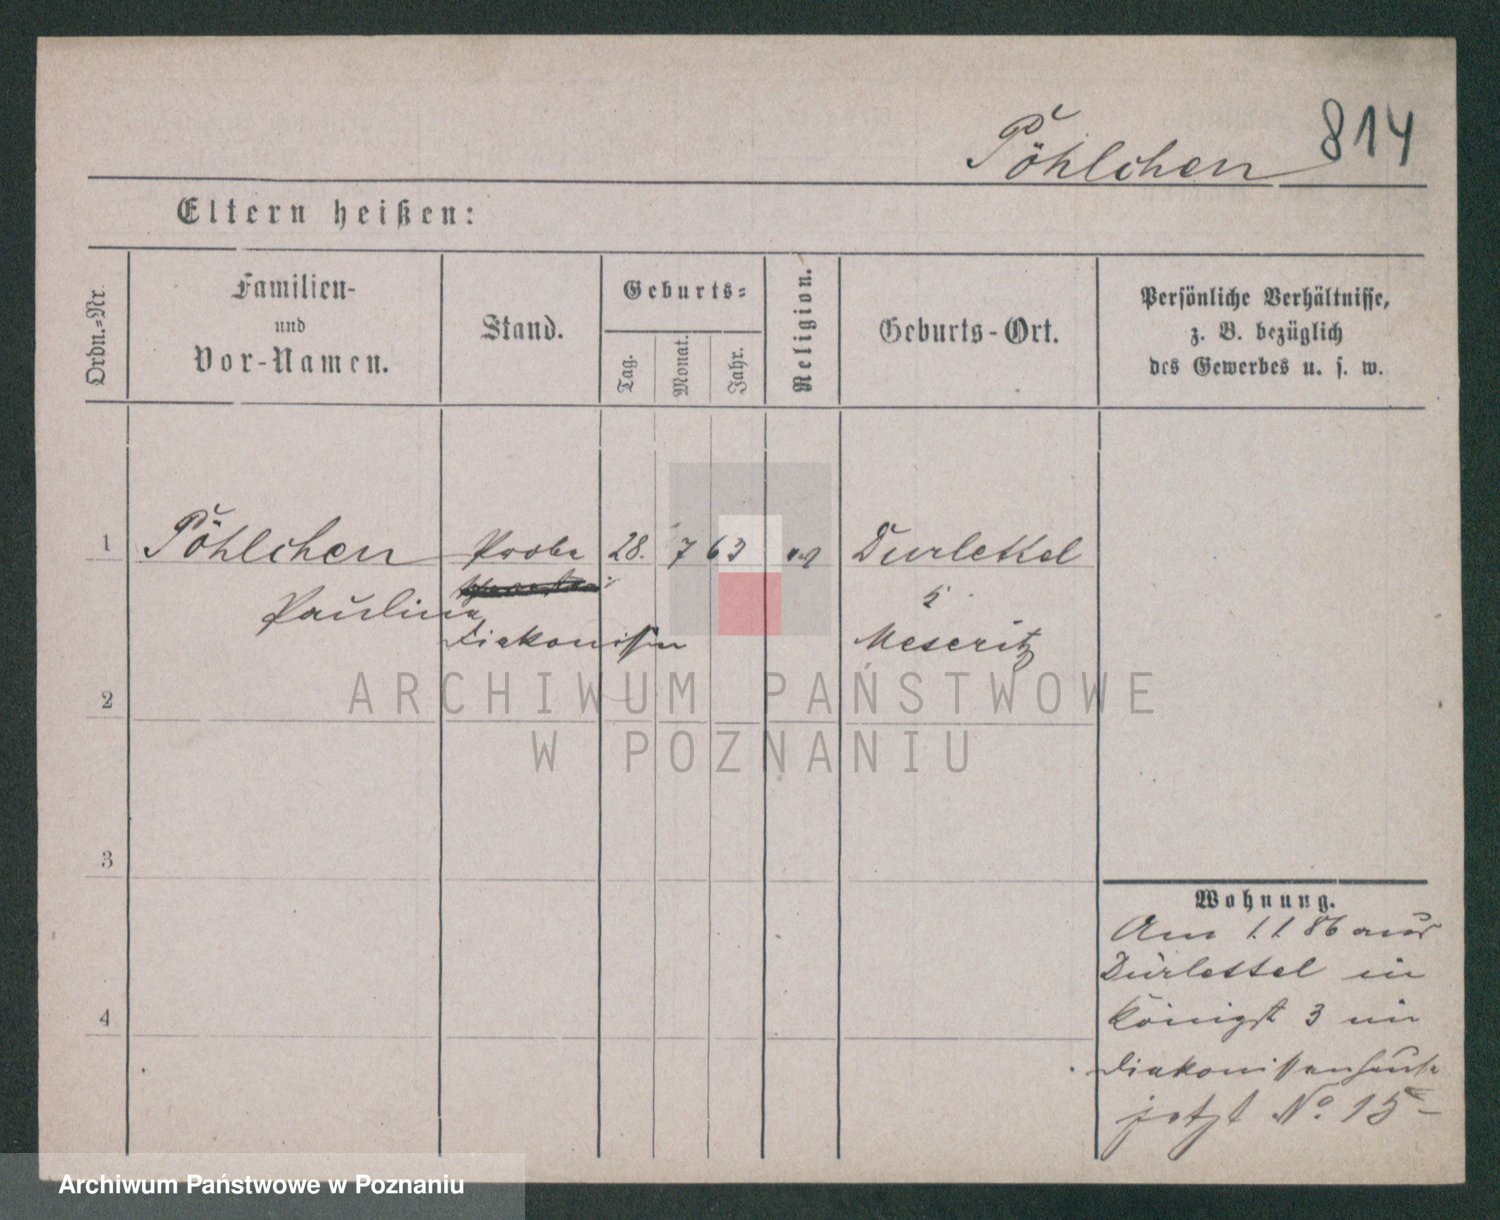 814
Pöhlchen
Eltern heißen:
Ordn.-Nr.
Familien-
und
Vor-Namen.
Stand.
Geburts-
Tag.
Monat.
Jahr.
Religion.
Geburts-Ort.
Persönliche Verhältnisse,
z. B. bezüglich
des Gewerbes u. s. w.
1 Pöhlchen Probe 28. 7 63 ev Durlettel
Pauline
Diakonissin
Meseritz
ARCHIWUM PAŃSTWOWE
W POZNANIU
2
3
4
Wohnung.
Am 1.1 86 aus
Dürlettel in
Königst 3 im
Diakonissenhause
jetzt No. 15
Archiwum Państwowe w Poznaniu